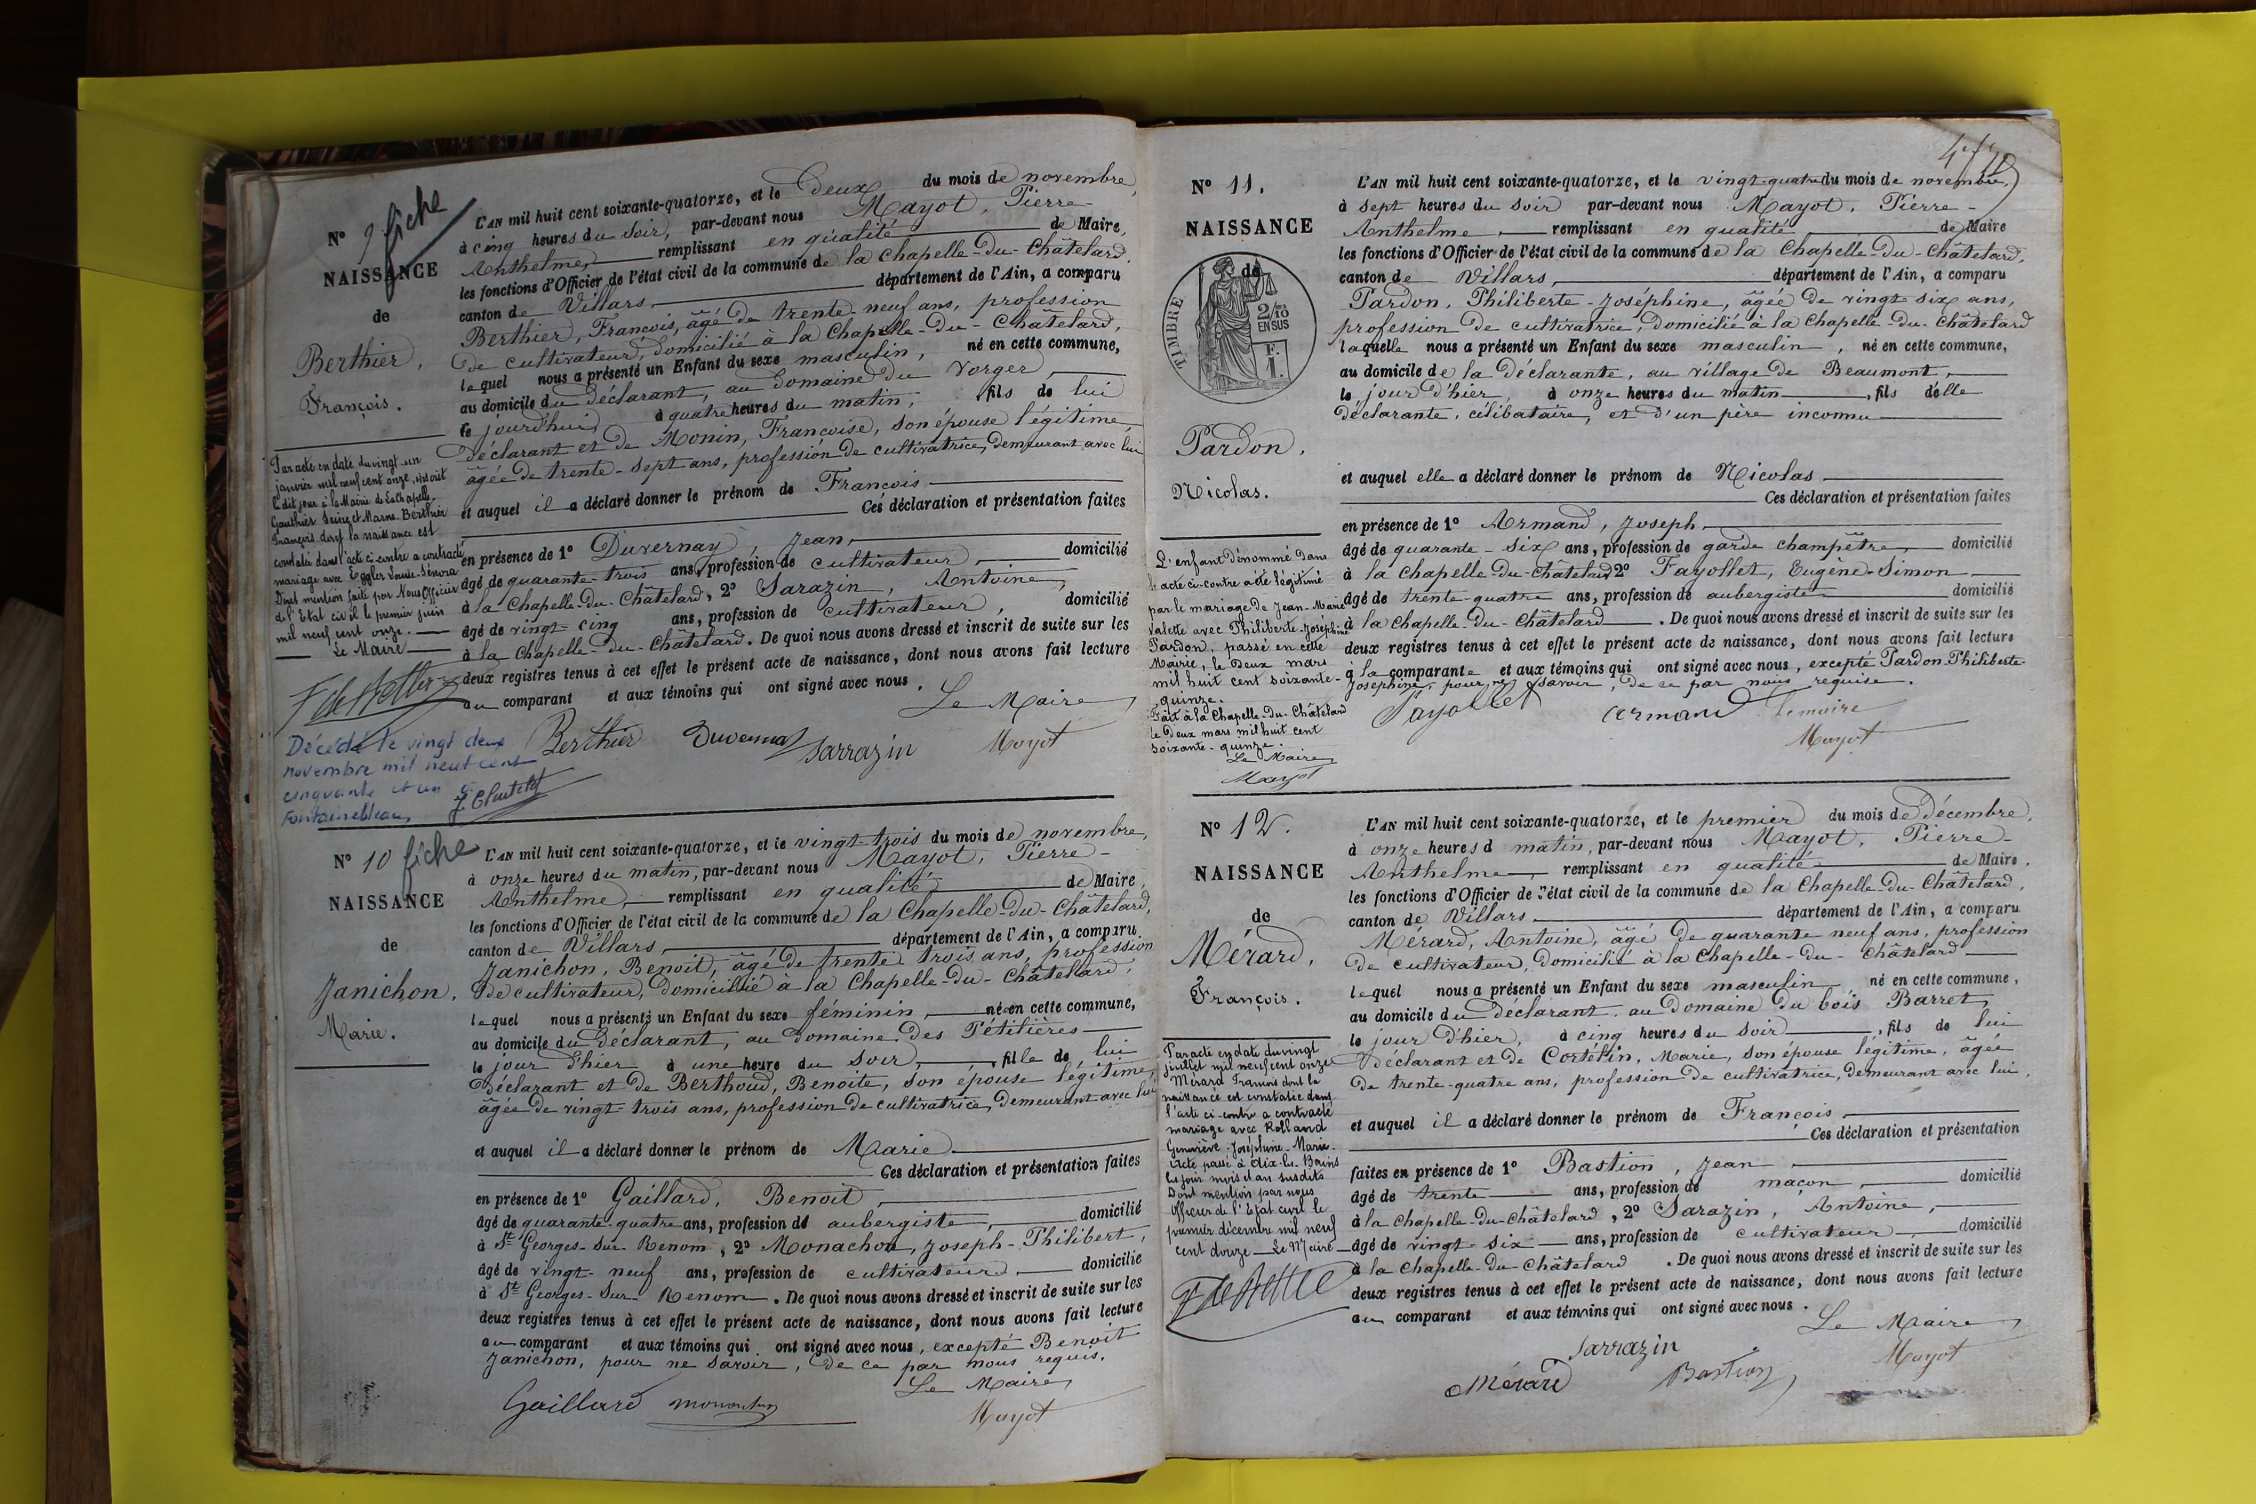 N° 9 fiche
NAISSANCE
de
Berthier,
François.
L'AN mil huit cent soixante-quatorze, et le deux du mois de novembre,
à cinq heures du soir, par-devant nous Mayot, Pierre-
Anthelme, remplissant en qualité de Maire,
les fonctions d'Officier de l'état civil de la commune de la Chapelle-Du-Châtelard,
canton de Villars, département de l'Ain, a comparu
Berthier, François, âgé de trente-neuf ans, profession
de cultivateur, domicilié à la Chapelle-Du-Châtelard,
lequel nous a présenté un Enfant du sexe masculin, né en cette commune,
au domicile du déclarant, au domaine du Vorger,
le jourd'hui à quatre heures du matin, fils de lui
déclarant et de Monin, Françoise, son épouse légitime,
âgée de trente-sept ans, profession de cultivatrice, demeurant avec lui
et auquel il a déclaré donner le prénom de François
Ces déclaration et présentation faites
en présence de 1° Duvernay, Jean,
âgé de quarante-trois ans, profession de cultivateur, domicilié
à la Chapelle-Du-Châtelard, 2° Sarazin, Antoine,
âgé de vingt-cinq ans, profession de cultivateur, domicilié
à la Chapelle-Du-Châtelard. De quoi nous avons dressé et inscrit de suite sur les
deux registres tenus à cet effet le présent acte de naissance, dont nous avons fait lecture
au comparant et aux témoins qui ont signé avec nous.
Le Maire,
Berthier Duvernay Sarrazin Mayot
Par acte en date du vingt-un
janvier mil neuf cent onze,
le dit jour à la Mairie de
Gauthier Seine et Marne. Berthier
François dont la naissance est
constatée dans l'acte ci-contre a contracté
mariage avec Eggler Louise
Dont mention faite par Nous Officier
de l'Etat civil le premier juin
mil neuf cent onze.
Le Maire
Décédé le vingt deux
novembre mil neuf cent
cinquante et un à
Fontainebleau,
N° 10 fiche
NAISSANCE
de
Janichon,
Marie.
L'AN mil huit cent soixante-quatorze, et le vingt-trois du mois de novembre,
à onze heures du matin, par-devant nous Mayot, Pierre-
Anthelme, remplissant en qualité de Maire,
les fonctions d'Officier de l'état civil de la commune de la Chapelle-Du-Châtelard,
canton de Villars, département de l'Ain, a comparu
Janichon, Benoit, âgé de trente trois ans, profession
de cultivateur, domicilié à la Chapelle-Du-Châtelard,
lequel nous a présenté un Enfant du sexe féminin, né en cette commune,
au domicile du déclarant, au domaine des Pétitières
le jour d'hier à une heure du soir, fille de lui
déclarant et de Berthoud, Benoite, son épouse légitime,
âgée de vingt-trois ans, profession de cultivatrice, demeurant avec lui
et auquel il a déclaré donner le prénom de Marie
Ces déclaration et présentation faites
en présence de 1° Gaillard, Benoit,
âgé de quarante-quatre ans, profession de aubergiste, domicilié
à St Georges-Sur-Renom, 2° Monachon, Joseph-Philibert,
âgé de vingt-neuf ans, profession de cultivateur, domicilié
à St Georges-Sur-Renom. De quoi nous avons dressé et inscrit de suite sur les
deux registres tenus à cet effet le présent acte de naissance, dont nous avons fait lecture
au comparant et aux témoins qui ont signé avec nous, excepté Benoit
Janichon, pour ne savoir, de ce par nous requis.
Le Maire,
Gaillard Monachon Mayot
N° 11.
NAISSANCE
de
TIMBRE
2/10
EN SUS
Pardon,
Nicolas.
L'AN mil huit cent soixante-quatorze, et le vingt-quatre du mois de novembre,
à sept heures du soir par-devant nous Mayot, Pierre-
Anthelme, remplissant en qualité de Maire
les fonctions d'Officier de l'état civil de la commune de la Chapelle-Du-Châtelard,
canton de Villars, département de l'Ain, a comparu
Pardon, Philiberte-Joséphine, âgée de vingt-six ans,
profession de cultivatrice, domicilié à la Chapelle-Du-Châtelard
laquelle nous a présenté un Enfant du sexe masculin, né en cette commune,
au domicile de la déclarante, au village de Beaumont,
le jour d'hier, à onze heures du matin, fils d'elle
déclarante, célibataire, et d'un père inconnu
et auquel elle a déclaré donner le prénom de Nicolas
Ces déclaration et présentation faites
en présence de 1° Armand, Joseph,
âgé de quarante-six ans, profession de garde champêtre, domicilié
à la Chapelle-Du-Châtelard 2° Fayollet, Eugène-Simon
âgé de trente-quatre ans, profession de aubergiste domicilié
à la Chapelle-Du-Châtelard. De quoi nous avons dressé et inscrit de suite sur les
deux registres tenus à cet effet le présent acte de naissance, dont nous avons fait lecture
à la comparante et aux témoins qui ont signé avec nous, excepté Pardon Philiberte-
Joséphine, pour ne savoir, de ce par nous requise.
Fayollet Armand Le maire
Mayot
L'enfant dénommé dans
l'acte ci-contre a été légitimé
par le mariage de Jean-Marie
Valette avec Philiberte-Joséphine
Pardon, passé en cette
Mairie, le deux mars
mil huit cent soixante-
quinze.
Fait à la Chapelle-Du-Châtelard
le deux mars mil huit cent
soixante-quinze.
Le Maire,
Mayot
N° 12.
NAISSANCE
de
Mérard,
François.
L'AN mil huit cent soixante-quatorze, et le premier du mois de Décembre,
à onze heures d matin, par-devant nous Mayot, Pierre-
Anthelme, remplissant en qualité de Maire,
les fonctions d'Officier de l'état civil de la commune de la Chapelle-Du-Châtelard,
canton de Villars département de l'Ain, a comparu
Mérard, Antoine, âgé de quarante neuf ans, profession
de cultivateur, domicilié à la Chapelle-Du-Châtelard
lequel nous a présenté un Enfant du sexe masculin né en cette commune,
au domicile du déclarant, au domaine du bois Barret,
le jour d'hier, à cinq heures du soir, fils de lui
déclarant et de Cortelin, Marie, son épouse légitime, âgée
de trente-quatre ans, profession de cultivatrice, demeurant avec lui,
et auquel il a déclaré donner le prénom de François
Ces déclaration et présentation
faites en présence de 1° Bastion, Jean
âgé de trente ans, profession de maçon, domicilié
à la Chapelle-Du-Châtelard, 2° Sarazin, Antoine,
âgé de vingt-six ans, profession de cultivateur, domicilié
à la Chapelle-Du-Châtelard. De quoi nous avons dressé et inscrit de suite sur les
deux registres tenus à cet effet le présent acte de naissance, dont nous avons fait lecture
au comparant et aux témoins qui ont signé avec nous.
Le Maire,
Sarrazin
Mérard Bastion Mayot
Par acte en date du vingt
juillet mil neuf cent onze
Mérard François dont la
naissance est constatée dans
l'acte ci-contre a contracté
mariage avec Rolland
Geneviève-Joséphine-Marie.
Acte passé à Aix-les-Bains
les jour mois et an susdits
Dont mention par nous
Officier de l'Etat civil le
premier décembre mil neuf
cent douze Le Maire